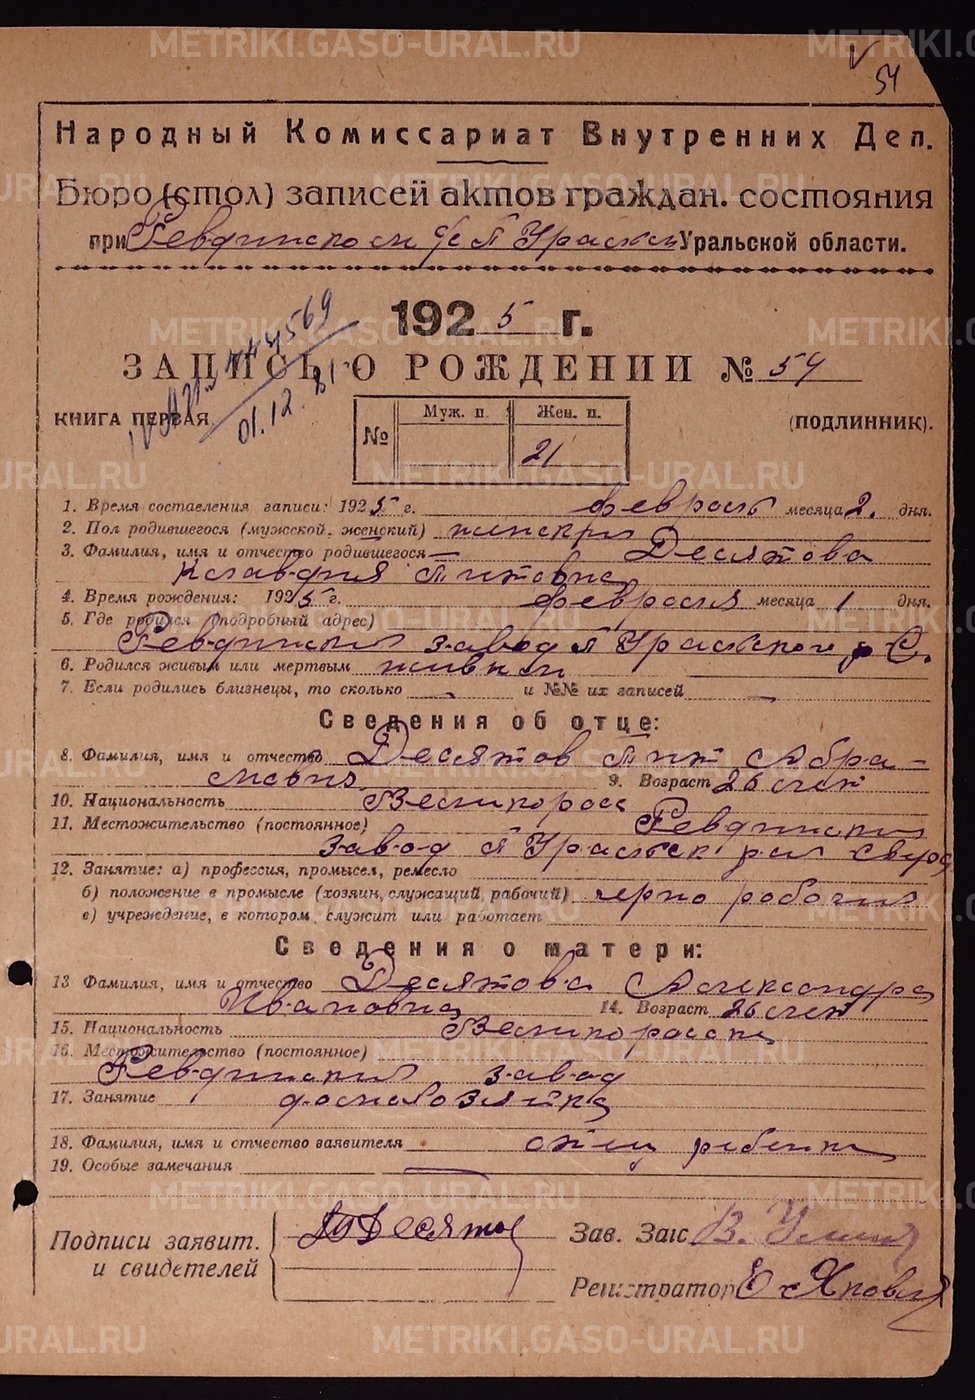 54
Народный Комиссариат Внутренних Дел.
Бюро (стол) записей актов граждан. состояния
при Ревдинском Уральской области.
1925 г.
ЗАПИСЬ О РОЖДЕНИИ № 54
01.12.81
КНИГА ПЕРВАЯ (ПОДЛИННИК).
№ Муж. п. Жен. п.
21
1. Время составления записи: 1925 г. февраль месяца 2. дня.
2. Пол родившегося (мужской, женский) женский
3. Фамилия, имя и отчество родившегося — Десятова
Клавдия Титовна
4. Время рождения: 1925 г. февраля месяца 1 дня.
5. Где родился (подробный адрес)
Ревдинский завод П Уральского р С.
6. Родился живым или мертвым живым
7. Если родились близнецы, то сколько - и №№ их записей —
Сведения об отце:
8. Фамилия, имя и отчество Десятов Тит Абра-
мович 9. Возраст 26 лет
10. Национальность Великоросс
11. Местожительство (постоянное) Ревдинский
завод П Уральск
12. Занятие: а) профессия, промысел, ремесло
б) положение в промысле (хозяин, служащий, рабочий) черно рабочий
в) учреждение, в котором служит или работает
Сведения о матери:
13 Фамилия, имя и отчество Десятова Александра
Ивановна 14. Возраст 26 лет
15. Национальность Великоросска
16. Местожительство (постоянное)
Ревдинский завод
17. Занятие домохозяйка
18. Фамилия, имя и отчество заявителя отец ребенка
19. Особые замечания —
Подписи заявит. ТДесятов Зав. Загс В.
и свидетелей Регистратор
METRIKI.GASO-URAL.RU